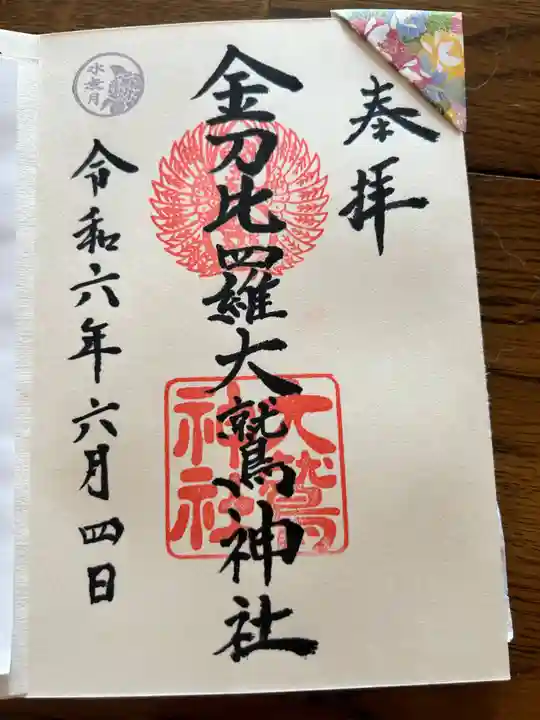 奉拝
金刀比羅大鷲神社
大鷲
神社
水無月
令和六年六月四日